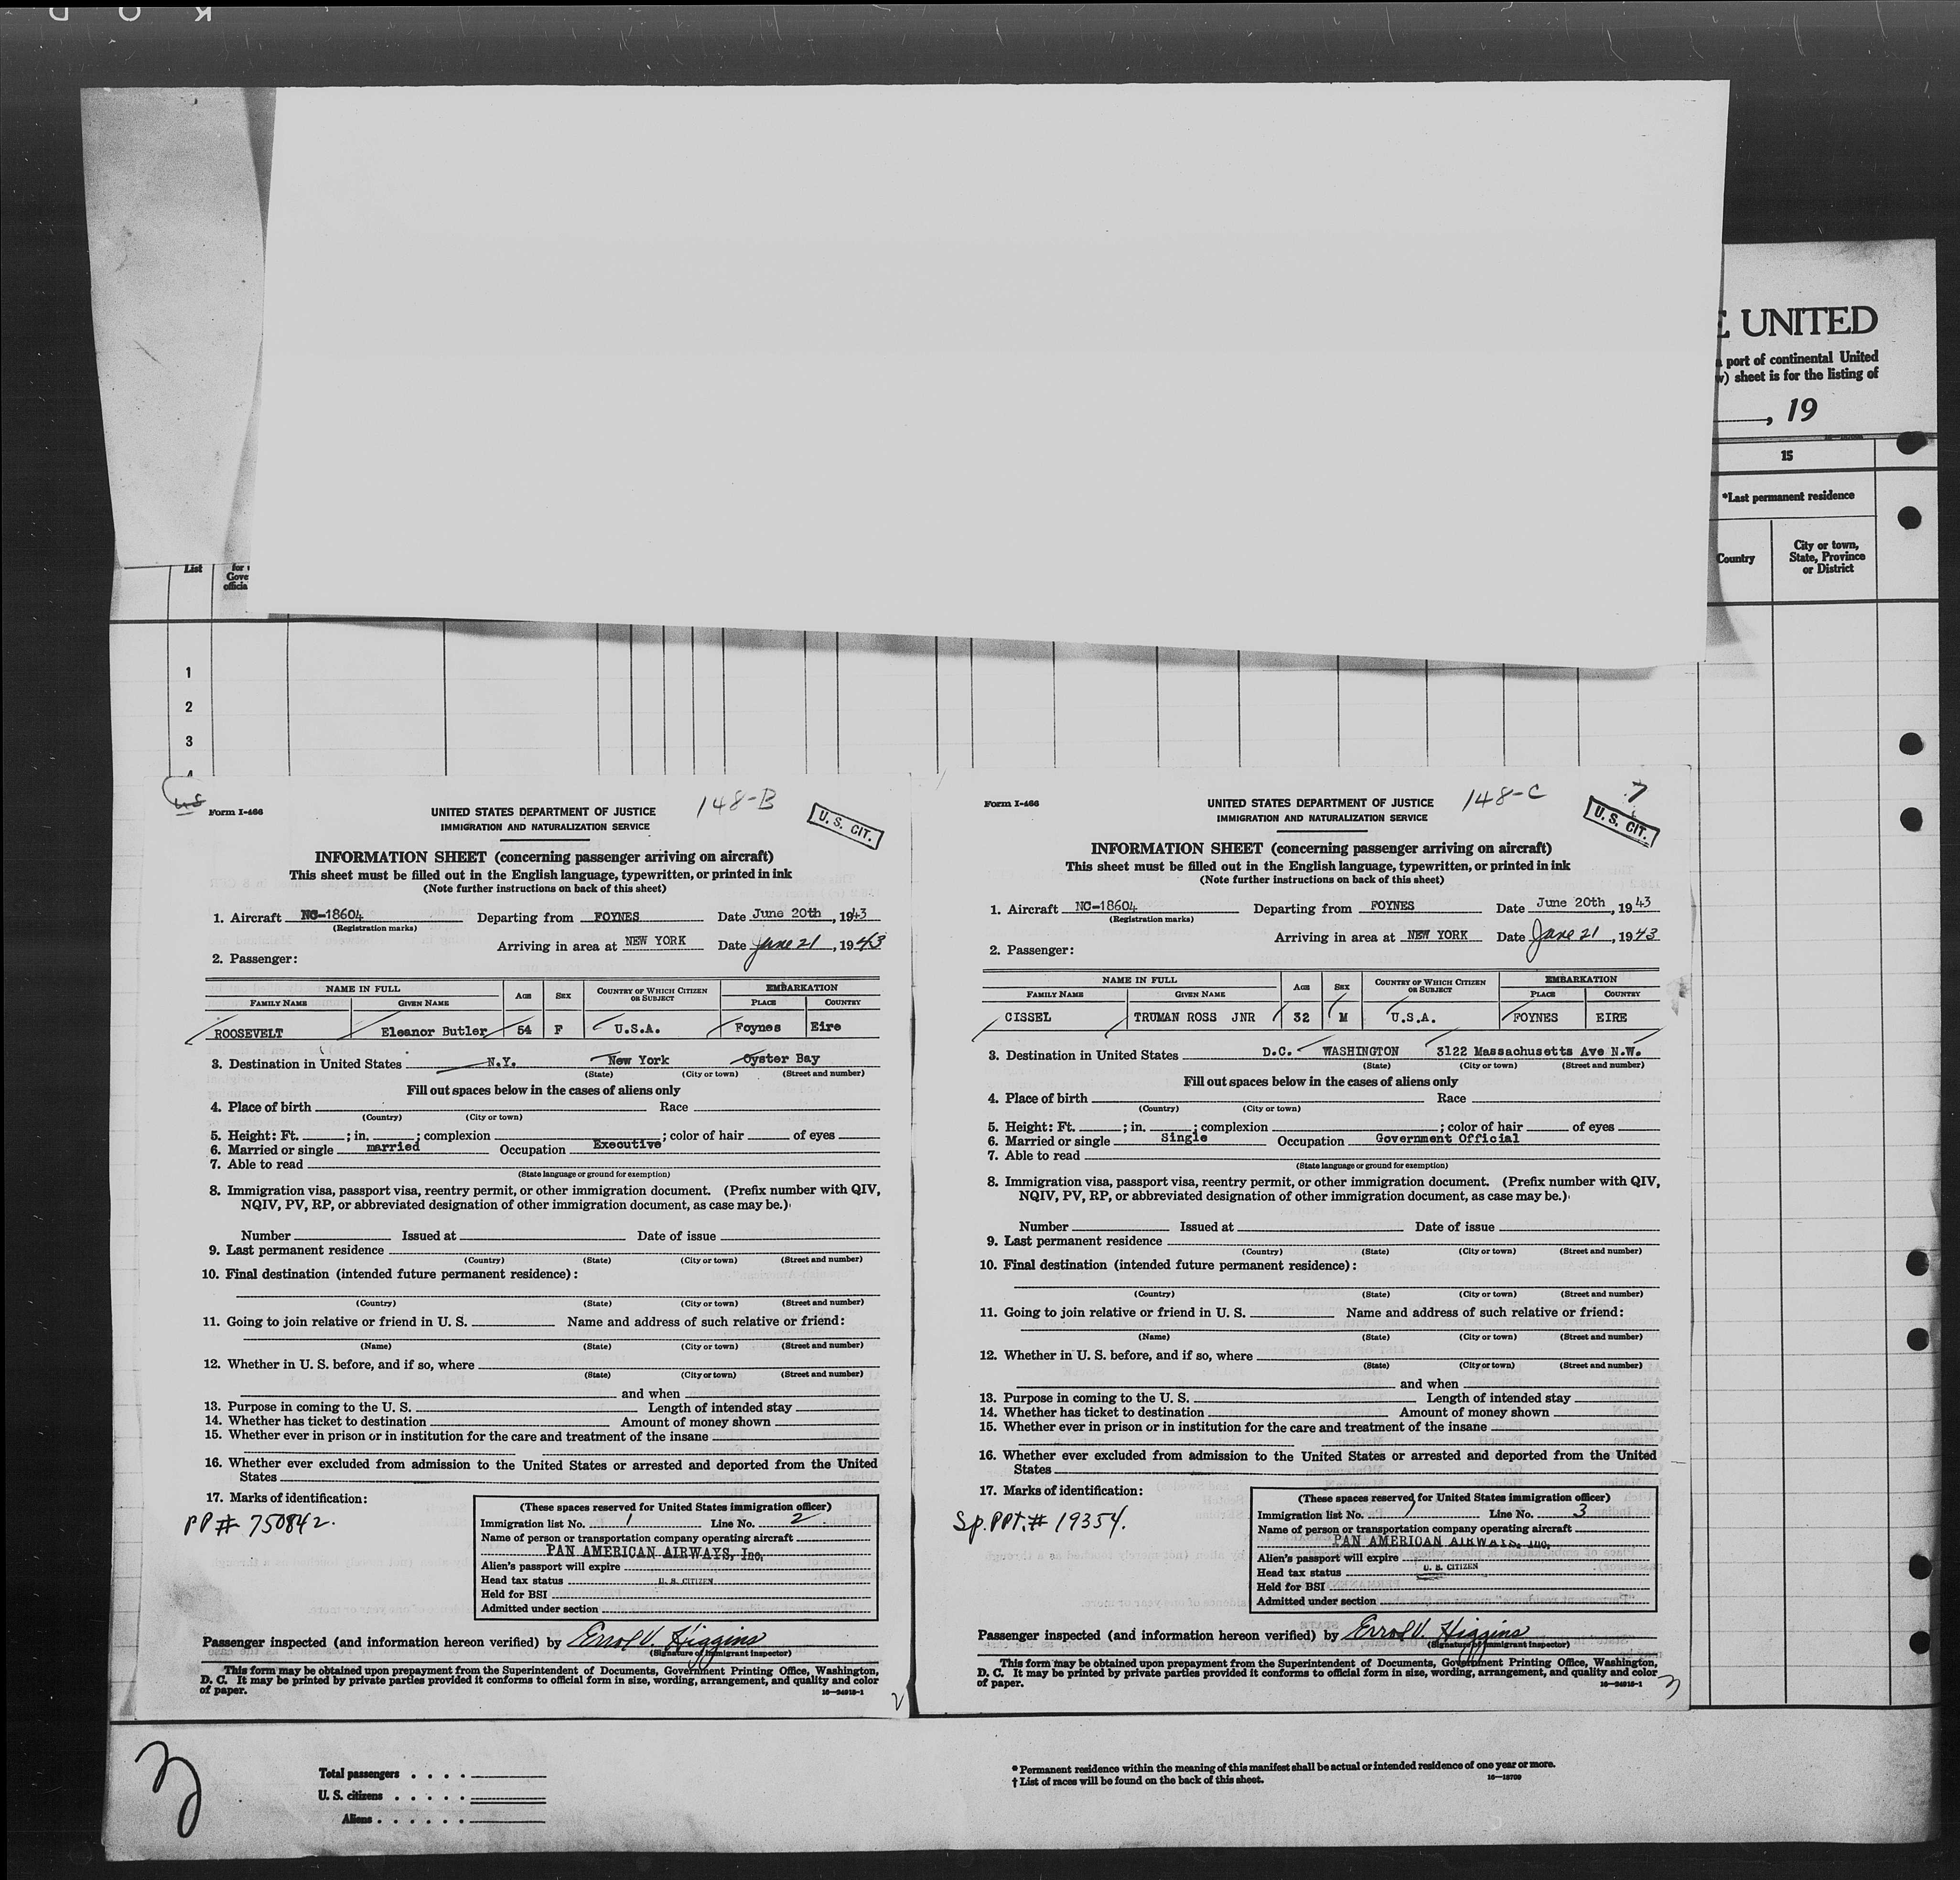 K O D
E UNITED
port of continental United
sheet is for the listing of
, 19
15
*Last permanent residence
Country
City or town,
State, Province
or District
List
for
Gove
officia
1
2
3
4
Form I-466
UNITED STATES DEPARTMENT OF JUSTICE
148-B
U. S. CIT.
IMMIGRATION AND NATURALIZATION SERVICE
INFORMATION SHEET (concerning passenger arriving on aircraft)
This sheet must be filled out in the English language, typewritten, or printed in ink
(Note further instructions on back of this sheet)
1. Aircraft NC-18604 Departing from FOYNES Date June 20th, 1943
(Registration marks)
Arriving in area at NEW YORK Date June 21, 1943
2. Passenger:
NAME IN FULL AGE SEX COUNTRY OF WHICH CITIZEN OR SUBJECT EMBARKATION
FAMILY NAME GIVEN NAME PLACE COUNTRY
ROOSEVELT Eleanor Butler 54 F U.S.A. Foynes Eire
3. Destination in United States N.Y. New York Oyster Bay
(State) (City or town) (Street and number)
Fill out spaces below in the cases of aliens only
4. Place of birth Race
(Country) (City or town)
5. Height: Ft. ; in. ; complexion ; color of hair of eyes
6. Married or single married Occupation Executive
7. Able to read
(State language or ground for exemption)
8. Immigration visa, passport visa, reentry permit, or other immigration document. (Prefix number with QIV,
NQIV, PV, RP, or abbreviated designation of other immigration document, as case may be.)
Number Issued at Date of issue
9. Last permanent residence
(Country) (State) (City or town) (Street and number)
10. Final destination (intended future permanent residence):
(Country) (State) (City or town) (Street and number)
11. Going to join relative or friend in U. S. Name and address of such relative or friend:
(Name) (State) (City or town) (Street and number)
12. Whether in U. S. before, and if so, where
(State) (City or town) (Street and number)
and when
13. Purpose in coming to the U. S. Length of intended stay
14. Whether has ticket to destination Amount of money shown
15. Whether ever in prison or in institution for the care and treatment of the insane
16. Whether ever excluded from admission to the United States or arrested and deported from the United
States
17. Marks of identification:
PP# 750842.
(These spaces reserved for United States immigration officer)
Immigration list No. 1 Line No. 2
Name of person or transportation company operating aircraft
PAN AMERICAN AIRWAYS, Inc.
Alien's passport will expire
Head tax status U. S. CITIZEN
Held for BSI
Admitted under section
Passenger inspected (and information hereon verified) by Errol V. Higgins
(Signature of immigrant inspector)
This form may be obtained upon prepayment from the Superintendent of Documents, Government Printing Office, Washington,
D. C. It may be printed by private parties provided it conforms to official form in size, wording, arrangement, and quality and color
of paper.
16—24915-1
2
Form I-466
UNITED STATES DEPARTMENT OF JUSTICE
148-C
7
U. S. CIT.
IMMIGRATION AND NATURALIZATION SERVICE
INFORMATION SHEET (concerning passenger arriving on aircraft)
This sheet must be filled out in the English language, typewritten, or printed in ink
(Note further instructions on back of this sheet)
1. Aircraft NC-18604 Departing from FOYNES Date June 20th, 1943
(Registration marks)
Arriving in area at NEW YORK Date June 21, 1943
2. Passenger:
NAME IN FULL AGE SEX COUNTRY OF WHICH CITIZEN OR SUBJECT EMBARKATION
FAMILY NAME GIVEN NAME PLACE COUNTRY
CISSEL TRUMAN ROSS JNR 32 M U.S.A. FOYNES EIRE
3. Destination in United States D.C. WASHINGTON 3122 Massachusetts Ave N.W.
(State) (City or town) (Street and number)
Fill out spaces below in the cases of aliens only
4. Place of birth Race
(Country) (City or town)
5. Height: Ft. ; in. ; complexion ; color of hair of eyes
6. Married or single Single Occupation Government Official
7. Able to read
(State language or ground for exemption)
8. Immigration visa, passport visa, reentry permit, or other immigration document. (Prefix number with QIV,
NQIV, PV, RP, or abbreviated designation of other immigration document, as case may be.)
Number Issued at Date of issue
9. Last permanent residence
(Country) (State) (City or town) (Street and number)
10. Final destination (intended future permanent residence):
(Country) (State) (City or town) (Street and number)
11. Going to join relative or friend in U. S. Name and address of such relative or friend:
(Name) (State) (City or town) (Street and number)
12. Whether in U. S. before, and if so, where
(State) (City or town) (Street and number)
and when
13. Purpose in coming to the U. S. Length of intended stay
14. Whether has ticket to destination Amount of money shown
15. Whether ever in prison or in institution for the care and treatment of the insane
16. Whether ever excluded from admission to the United States or arrested and deported from the United
States
17. Marks of identification:
Sp. PPt. # 19354.
(These spaces reserved for United States immigration officer)
Immigration list No. 1 Line No. 3
Name of person or transportation company operating aircraft
PAN AMERICAN AIRWAYS, Inc.
Alien's passport will expire
Head tax status U. S. CITIZEN
Held for BSI
Admitted under section
Passenger inspected (and information hereon verified) by Errol V. Higgins
(Signature of immigrant inspector)
This form may be obtained upon prepayment from the Superintendent of Documents, Government Printing Office, Washington,
D. C. It may be printed by private parties provided it conforms to official form in size, wording, arrangement, and quality and color
of paper.
16—24915-1
3
Total passengers
U. S. citizens
Aliens
* Permanent residence within the meaning of this manifest shall be actual or intended residence of one year or more.
† List of races will be found on the back of this sheet.
16—18709